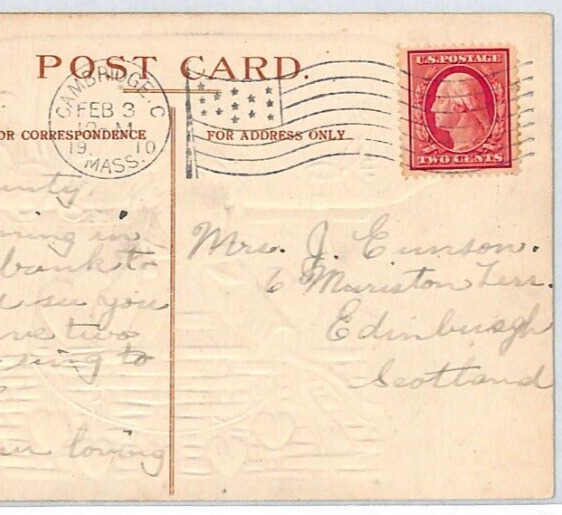 POST CARD.
CAMBRIDGE, C
FEB 3
19 10
MASS.
U.S. POSTAGE
TWO CENTS
OR CORRESPONDENCE
FOR ADDRESS ONLY
in
bank to
see you
two
to
loving
Mrs. J. Cunson.
6 Muriston Terr.
Edinburgh
Scotland